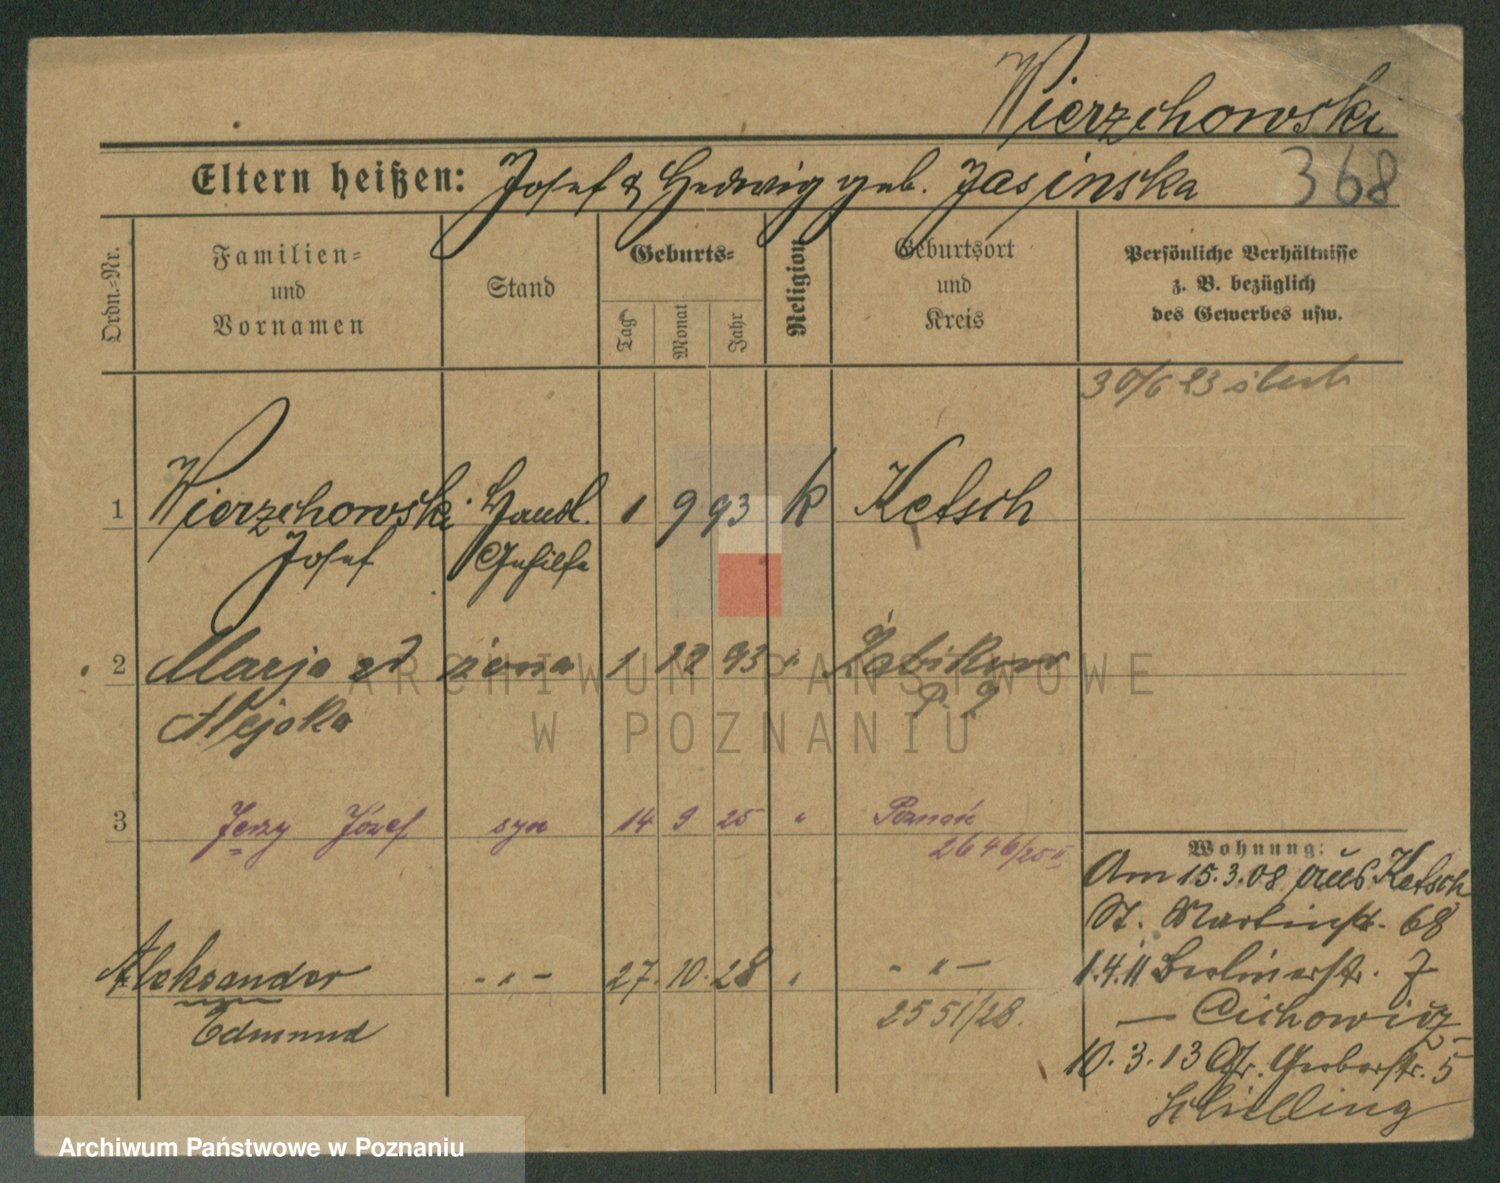 Wierzchowski
Eltern heißen: Josef & Hedwig geb. Jasinska 368
Ordn.-Nr.
Familien-
und
Vornamen
Stand
Geburts-
Tag
Monat
Jahr
Religion
Geburtsort
und
Kreis
Persönliche Verhältnisse
z. B. bezüglich
des Gewerbes usw.
30/6 23
1 Wierzchowski Handl. 1 9 93 k Ketsch
Josef Gehilfe
2 Marja żona 1 93 " Żabikowo
3 Jerzy Józef syn 14 9 25 " Poznań
2646/25 II
Aleksander - " - 27. 10. 28 " - " -
Edmund 2551/28.
Wohnung:
Am 15.3.08 aus Ketsch
St. Martinstr. 68
1.4.11 Berlinerstr. 7
— Cichowicz
10.3.13 Gr. Gerberstr. 5
Schilling
ARCHIWUM PAŃSTWOWE
W POZNANIU
Archiwum Państwowe w Poznaniu